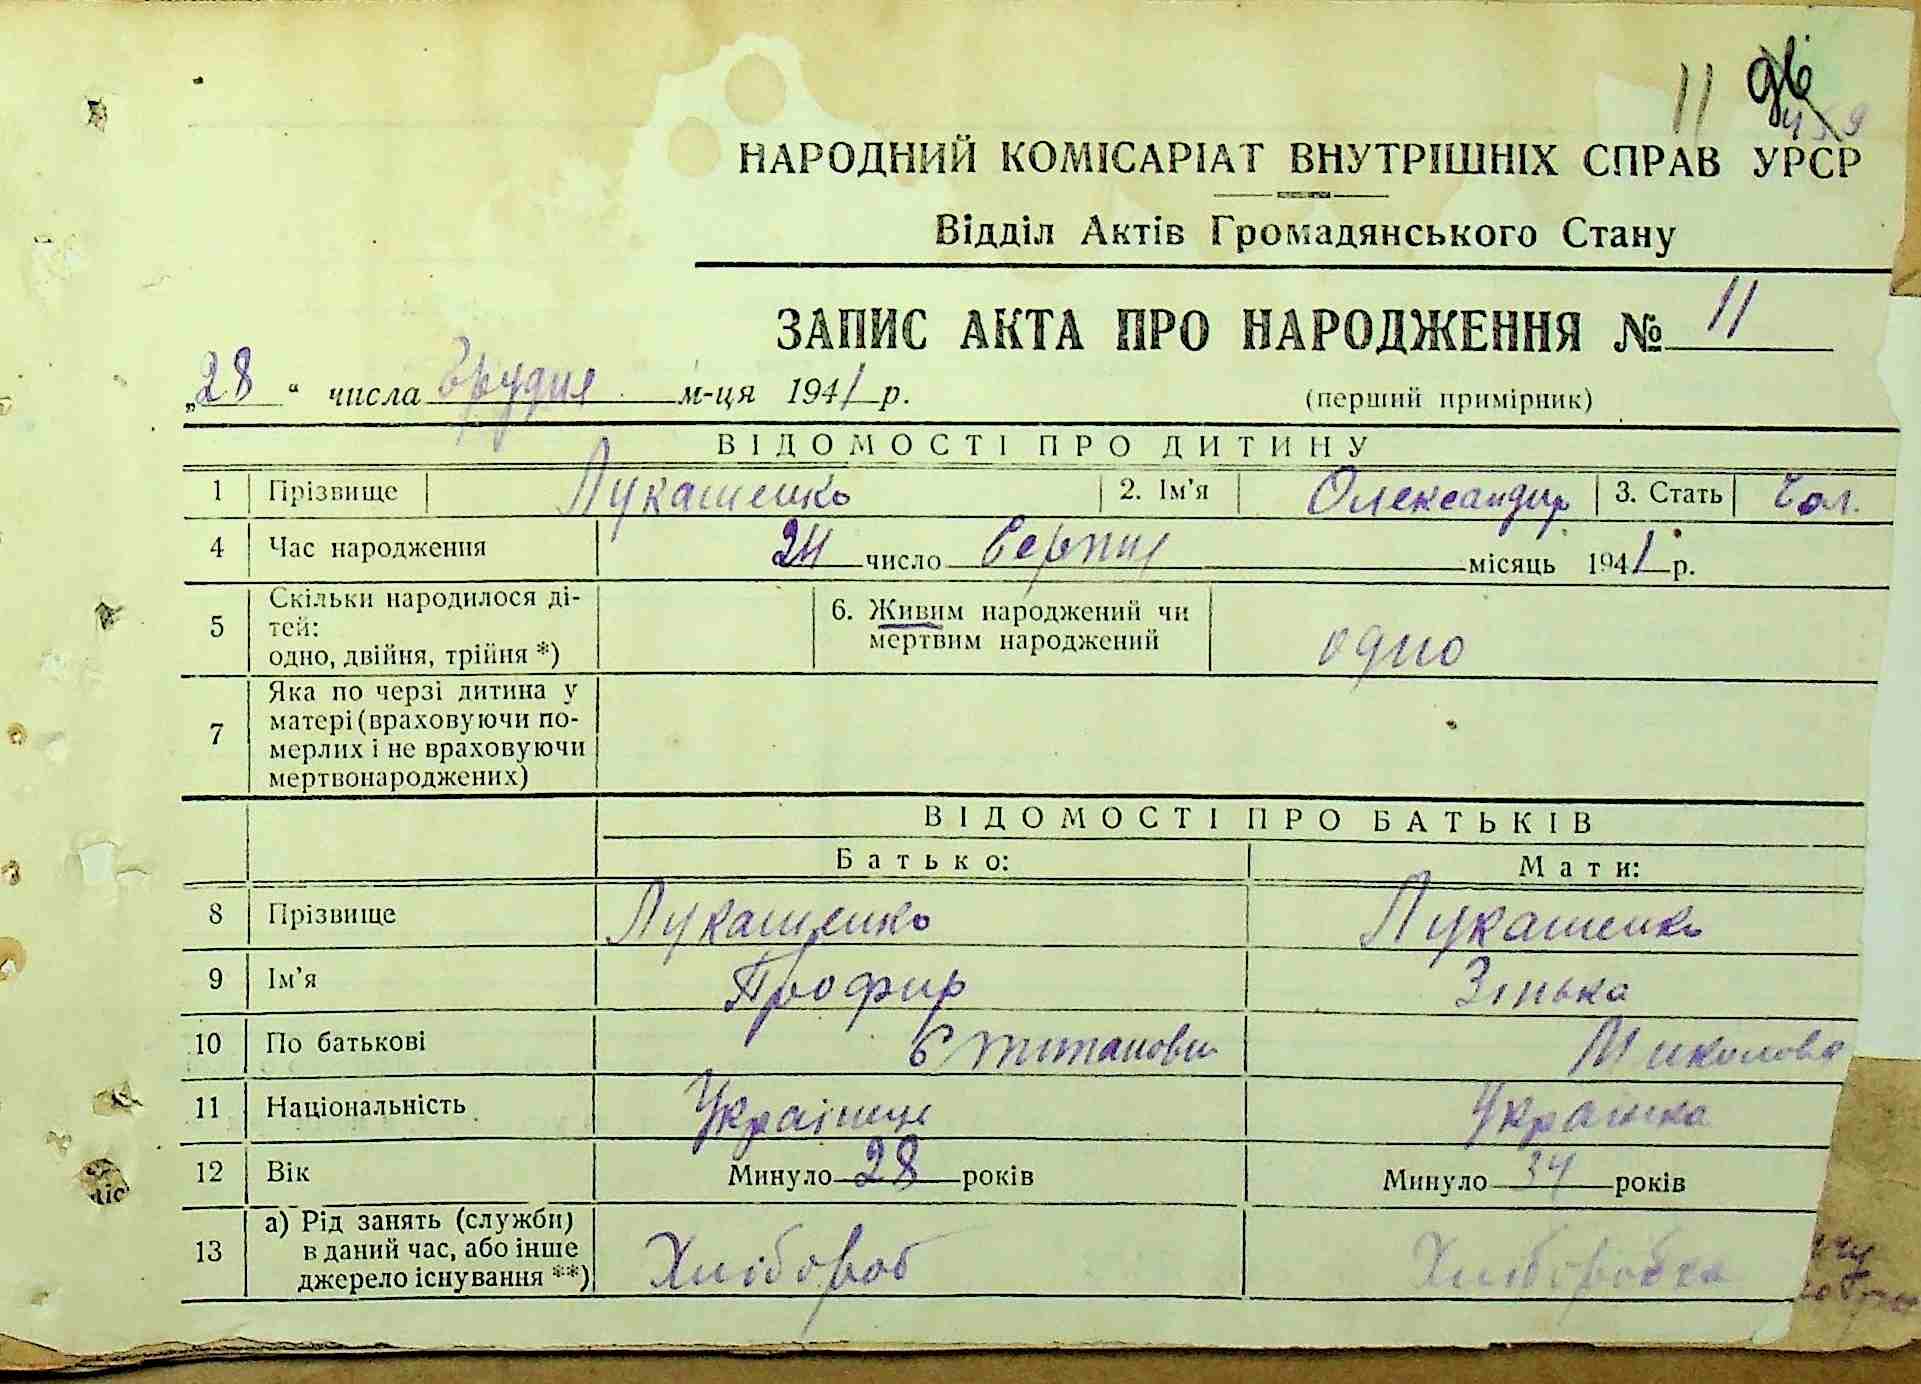 11
459
НАРОДНИЙ КОМІСАРІАТ ВНУТРІШНІХ СПРАВ УРСР
Відділ Актів Громадянського Стану
ЗАПИС АКТА ПРО НАРОДЖЕННЯ № 11
„28“ числа Грудня м-ця 1941 р. (перший примірник)
ВІДОМОСТІ ПРО ДИТИНУ
1 Прізвище Лукашенко 2. Ім'я Олександир 3. Стать Чол.
4 Час народження 24 число Серпня місяць 1941 р.
5 Скільки народилося ді-
тей:
одно, двійня, трійня *)
6. Живим народжений чи
мертвим народжений
одно
7 Яка по черзі дитина у
матері (враховуючи по-
мерлих і не враховуючи
мертвонароджених)
ВІДОМОСТІ ПРО БАТЬКІВ
Батько: Мати:
8 Прізвище Лукашенко Лукашенко
9 Ім'я Профир Зінька
10 По батькові Миколова
11 Національність Українець Українка
12 Вік Минуло 28 років Минуло 34 років
13 а) Рід занять (служби)
в даний час, або інше
джерело існування **)
Хлібороб Хліборобка